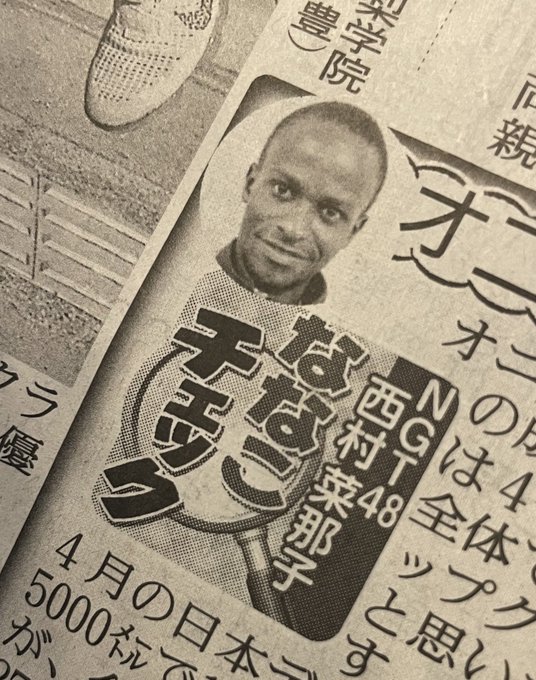 学院
豊）
両
親
オニ
NGT48
西村菜那子
ななこ
チェック
オニ
の
は4
全体
ップク
と思い
とす
4月の日本デ
5000㍍で
が、
クラ
優